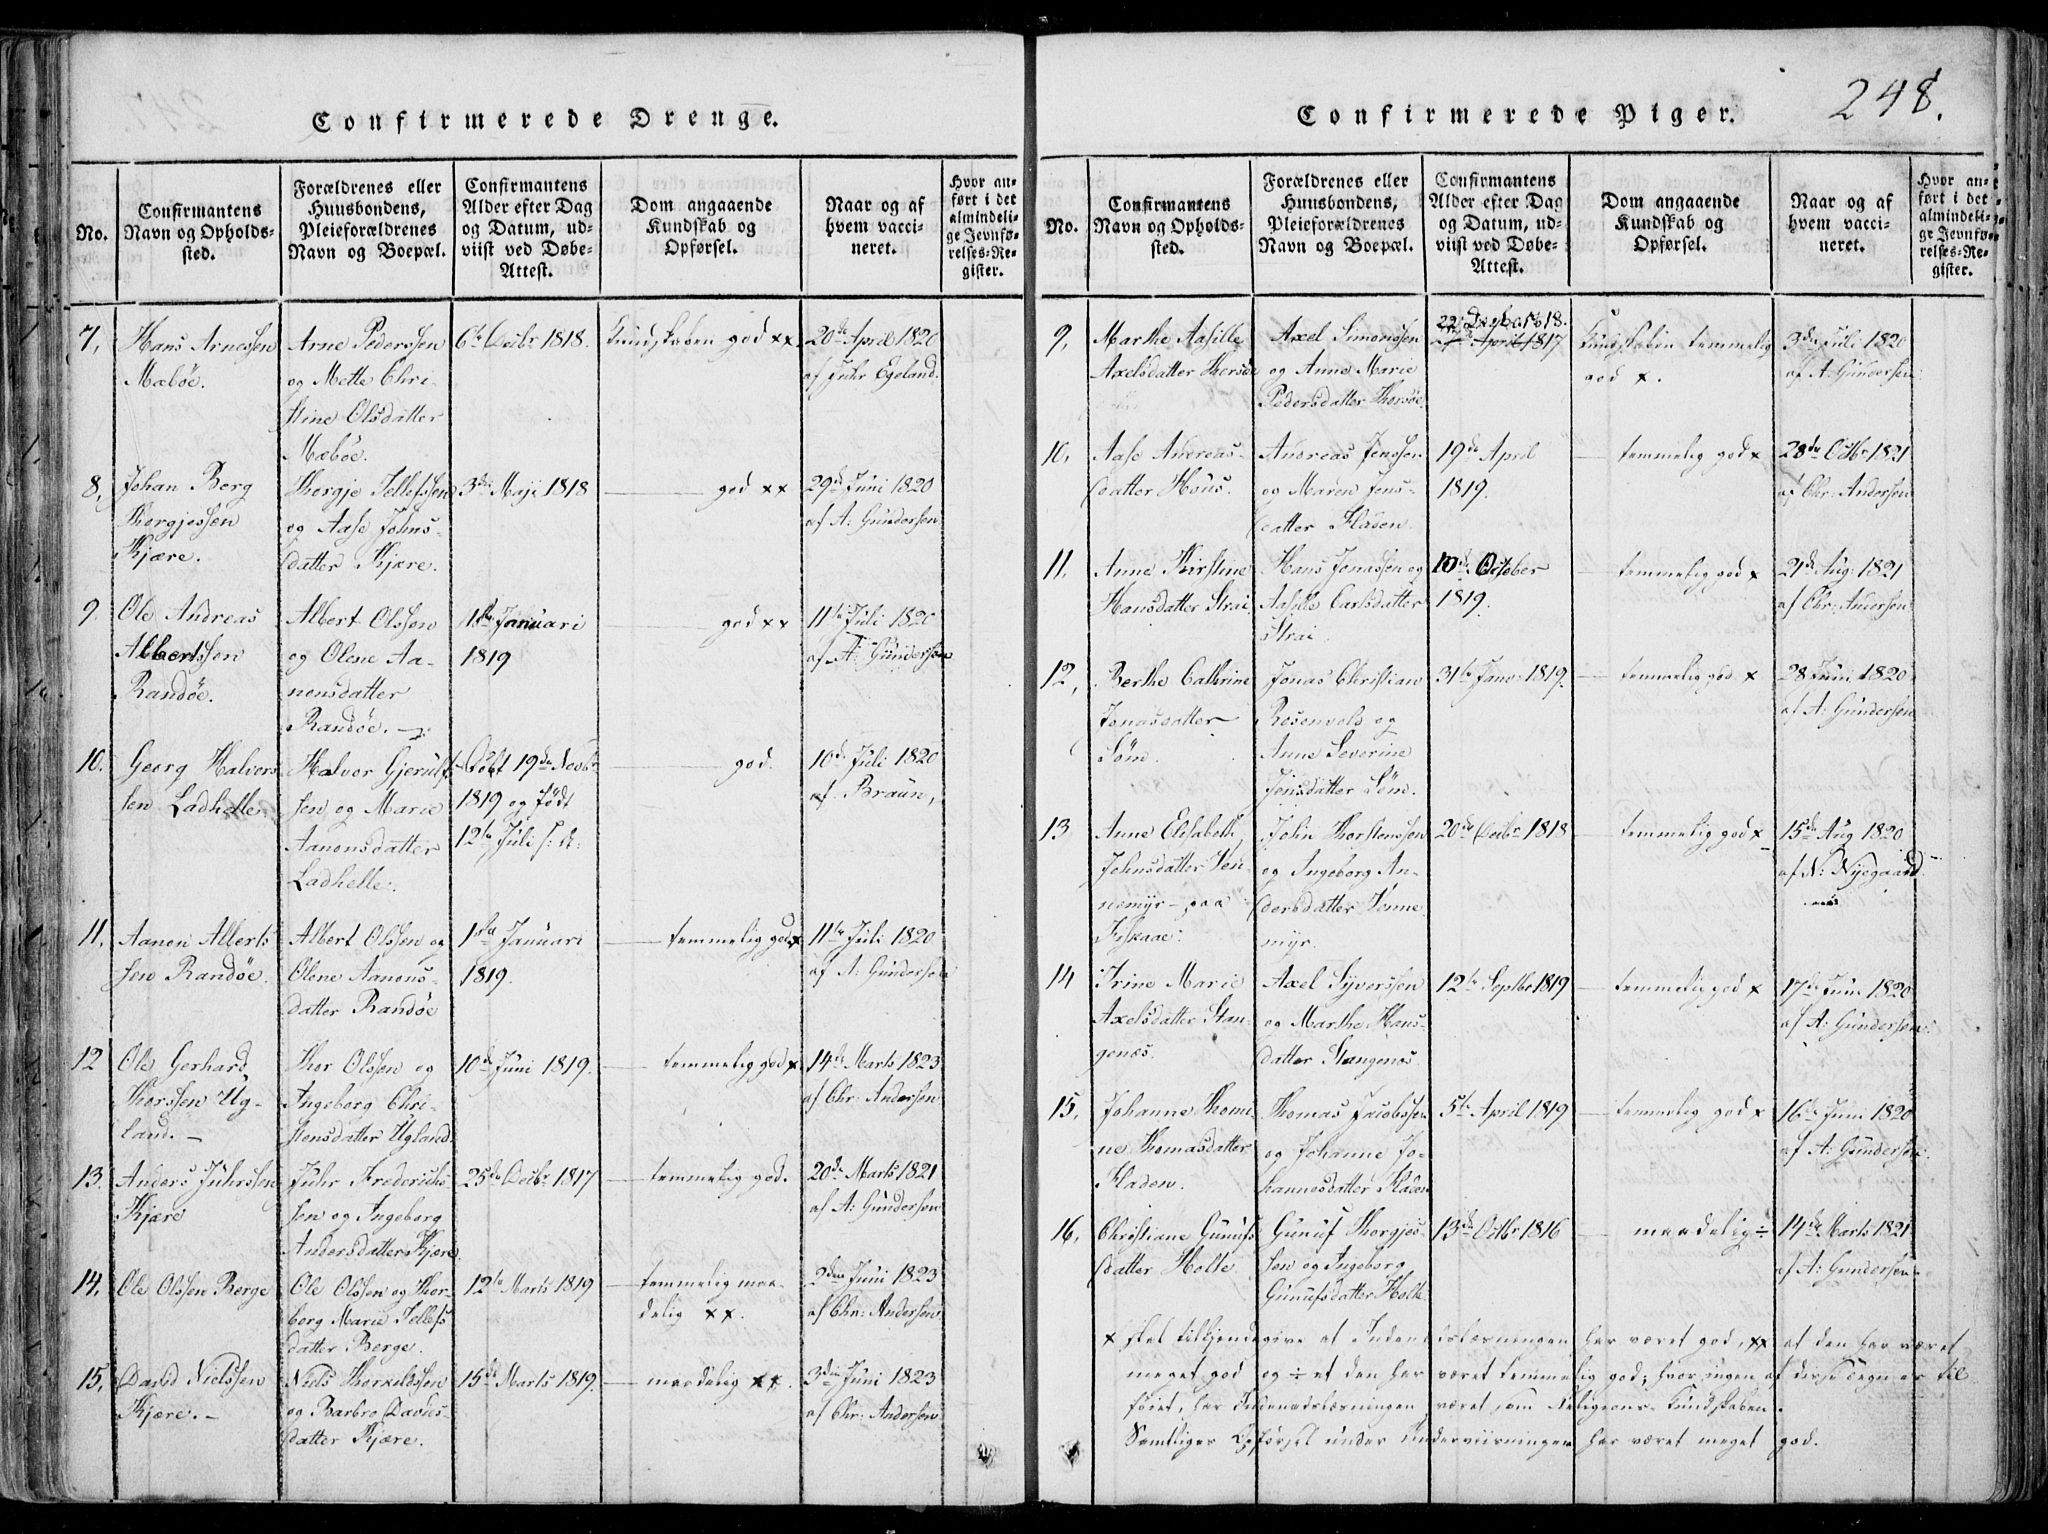 Confirmerede Drenge.
No.
Confirmantens
Navn og Opholds-
sted.
Forældrenes eller
Huusbondens,
Pleieforældrenes
Navn og Boepæl.
Confirmantens
Alder efter Dag
og Datum, ud-
viist ved Døbe-
Attest.
Dom angaaende
Kundskab og
Opførsel.
Naar og af
hvem vacci-
neret.
Hvor an-
ført i det
almindeli-
ge Jevnfø-
relses-Re-
gister.
7,
Hans Arnessen
Mæbøe.
Arne Pederssen
og Mette Chri-
stine Olsdatter
Mæbøe.
6te Decbr 1818.
Kundskaben god xx
20de April 1820
af Juhr Egeland.
8,
Johan Berg
Thorgjessen
Kjære.
Thorgje Tellefssen
og Aase Johns-
datter Kjære.
3die Maji 1818
god xx
29de Juni 1820
af A: Gundersen
9.
Ole Andreas
Albertssen
Randøe.
Albert Olssen
og Olene Aa-
nonsdatter
Randøe.
1ste Januari
1819
god xx
11te Juli 1820
af A: Gundersen
10.
Georg Halvors
sen Ladhelle
Halvor Gjerulf-
sen og Marie
Aanonsdatter
Ladhelle.
Døbt 19de Novbr
1819 og født
12te Juli s. A:
god.
10de Juli 1820
af Braun,
11,
Aanon Alberts
sen Randøe.
Albert Olssen og
Olene Aanons-
datter Randøe
1ste Januari
1819.
temmelig god x
11te Juli 1820
af A: Gundersen
12
Ole Gerhard
Thorssen Ug-
land. -
Thor Olssen og
Ingeborg Chri-
stensdatter Ugland.
10de Juni 1819.
temmelig god x
14de Marts 1823
af Chr: Andersen
13.
Anders Juhrssen
Kjære
Juhr Frederichs-
sen og Ingeborg
Andersdatter Kjære.
25de Decbr 1817
temmelig god.
20de Marts 1821
af A: Gundersen
14,
Ole Olssen Berge
Ole Olssen og Thor-
borg Marie Tellefs
datter Berge.
12te Marts 1819
temmelig maa-
delig xx.
2den Juni 1823
af Chr: Andersen
15,
David Nielssen
Kjære. -
Niels Thorkildssen
og Barbro Davids-
datter Kjære.
15de Marts 1819.
maadelig xx.
3die Juni 1823
af Chr: Andersen
Confirmerede Piger.
248.
No.
Confirmantens
Navn og Opholds-
sted.
Forældrenes eller
Huusbondens,
Pleieforældrenes
Navn og Boepæl.
Confirmantens
Alder efter Dag
og Datum, ud-
viist ved Døbe-
Attest.
Dom angaaende
Kundskab og
Opførsel.
Naar og af
hvem vacci-
neret.
Hvor an-
ført i det
almindeli-
ge Jevnfø-
relses-Re-
gister.
9,
Marthe Aasille
Axelsdatter Thorsøe
Axel Simonssen
og Anne Marie
Pedersdatter Thorsøe.
April 1817
Kundskaben temmelig
god x.
3die Juli 1820
af A: Gundersen
10,
Aase Andreas-
datter Høus.
Andreas Jenssen
og Maren Jens-
datter Fladen.
19de April
1819.
temmelig god x
28de Octbr 1821
af Chr: Andersen
11.
Anne Kirstine
Hansdatter Strai
Hans Jonassen og
Aasille Carlsdatter
Strai.
10de October
1819.
temmelig god x
21de Aug: 1821
af Chr: Andersen
12,
Berthe Cathrine
Jonasdatter
Søm.
Jonas Christian
Rosenvold og
Anne Severine
Jensdatter Søm.
31te Janv: 1819.
temmelig god x
28 Juni 1820
af A: Gundersen
13
Anne Elisabeth
Johnsdatter Ven-
nemyr - paa
Fiskaae.
John Thorstenssen
og Ingeborg An-
dersdatter Venne-
myr.
20de Decbr 1818
temmelig god x
15de Aug 1820
af N: Nyegaard
14
Trine Marie
Axelsdatter Stan-
genæs.
Axel Syverssen
og Marthe Hans-
datter Stangenæs.
12te Septbr 1819
temmelig god x
17de Juni 1820
af A: Gundersen.
15,
Johanne Thomi-
ne Thomasdatter
Fladen.
Thomas Jacobssen
og Johanne Jo-
hannesdatter Fladen
5te April 1819
temmelig god x
16de Juni 1820
af A: Gundersen.
16,
Christiane Gunufs
datter Holte.
Gunuf Thorgjes-
sen og Ingeborg
Gunufsdatter Holte.
13de Octbr 1816
maadelig ÷
14de Marts 1821
af A: Gundersen
x skal tilkjendegive at Indenadslæsningen har været god, xx at den har været
meget god og ÷ at den har været temmelig god; hvor ingen af disse Tegn er til-
føiet, har Indenadslæsningen været som Religions-Kundskaben.
Samtliges Opførsel under Underviisningen har været meget god.